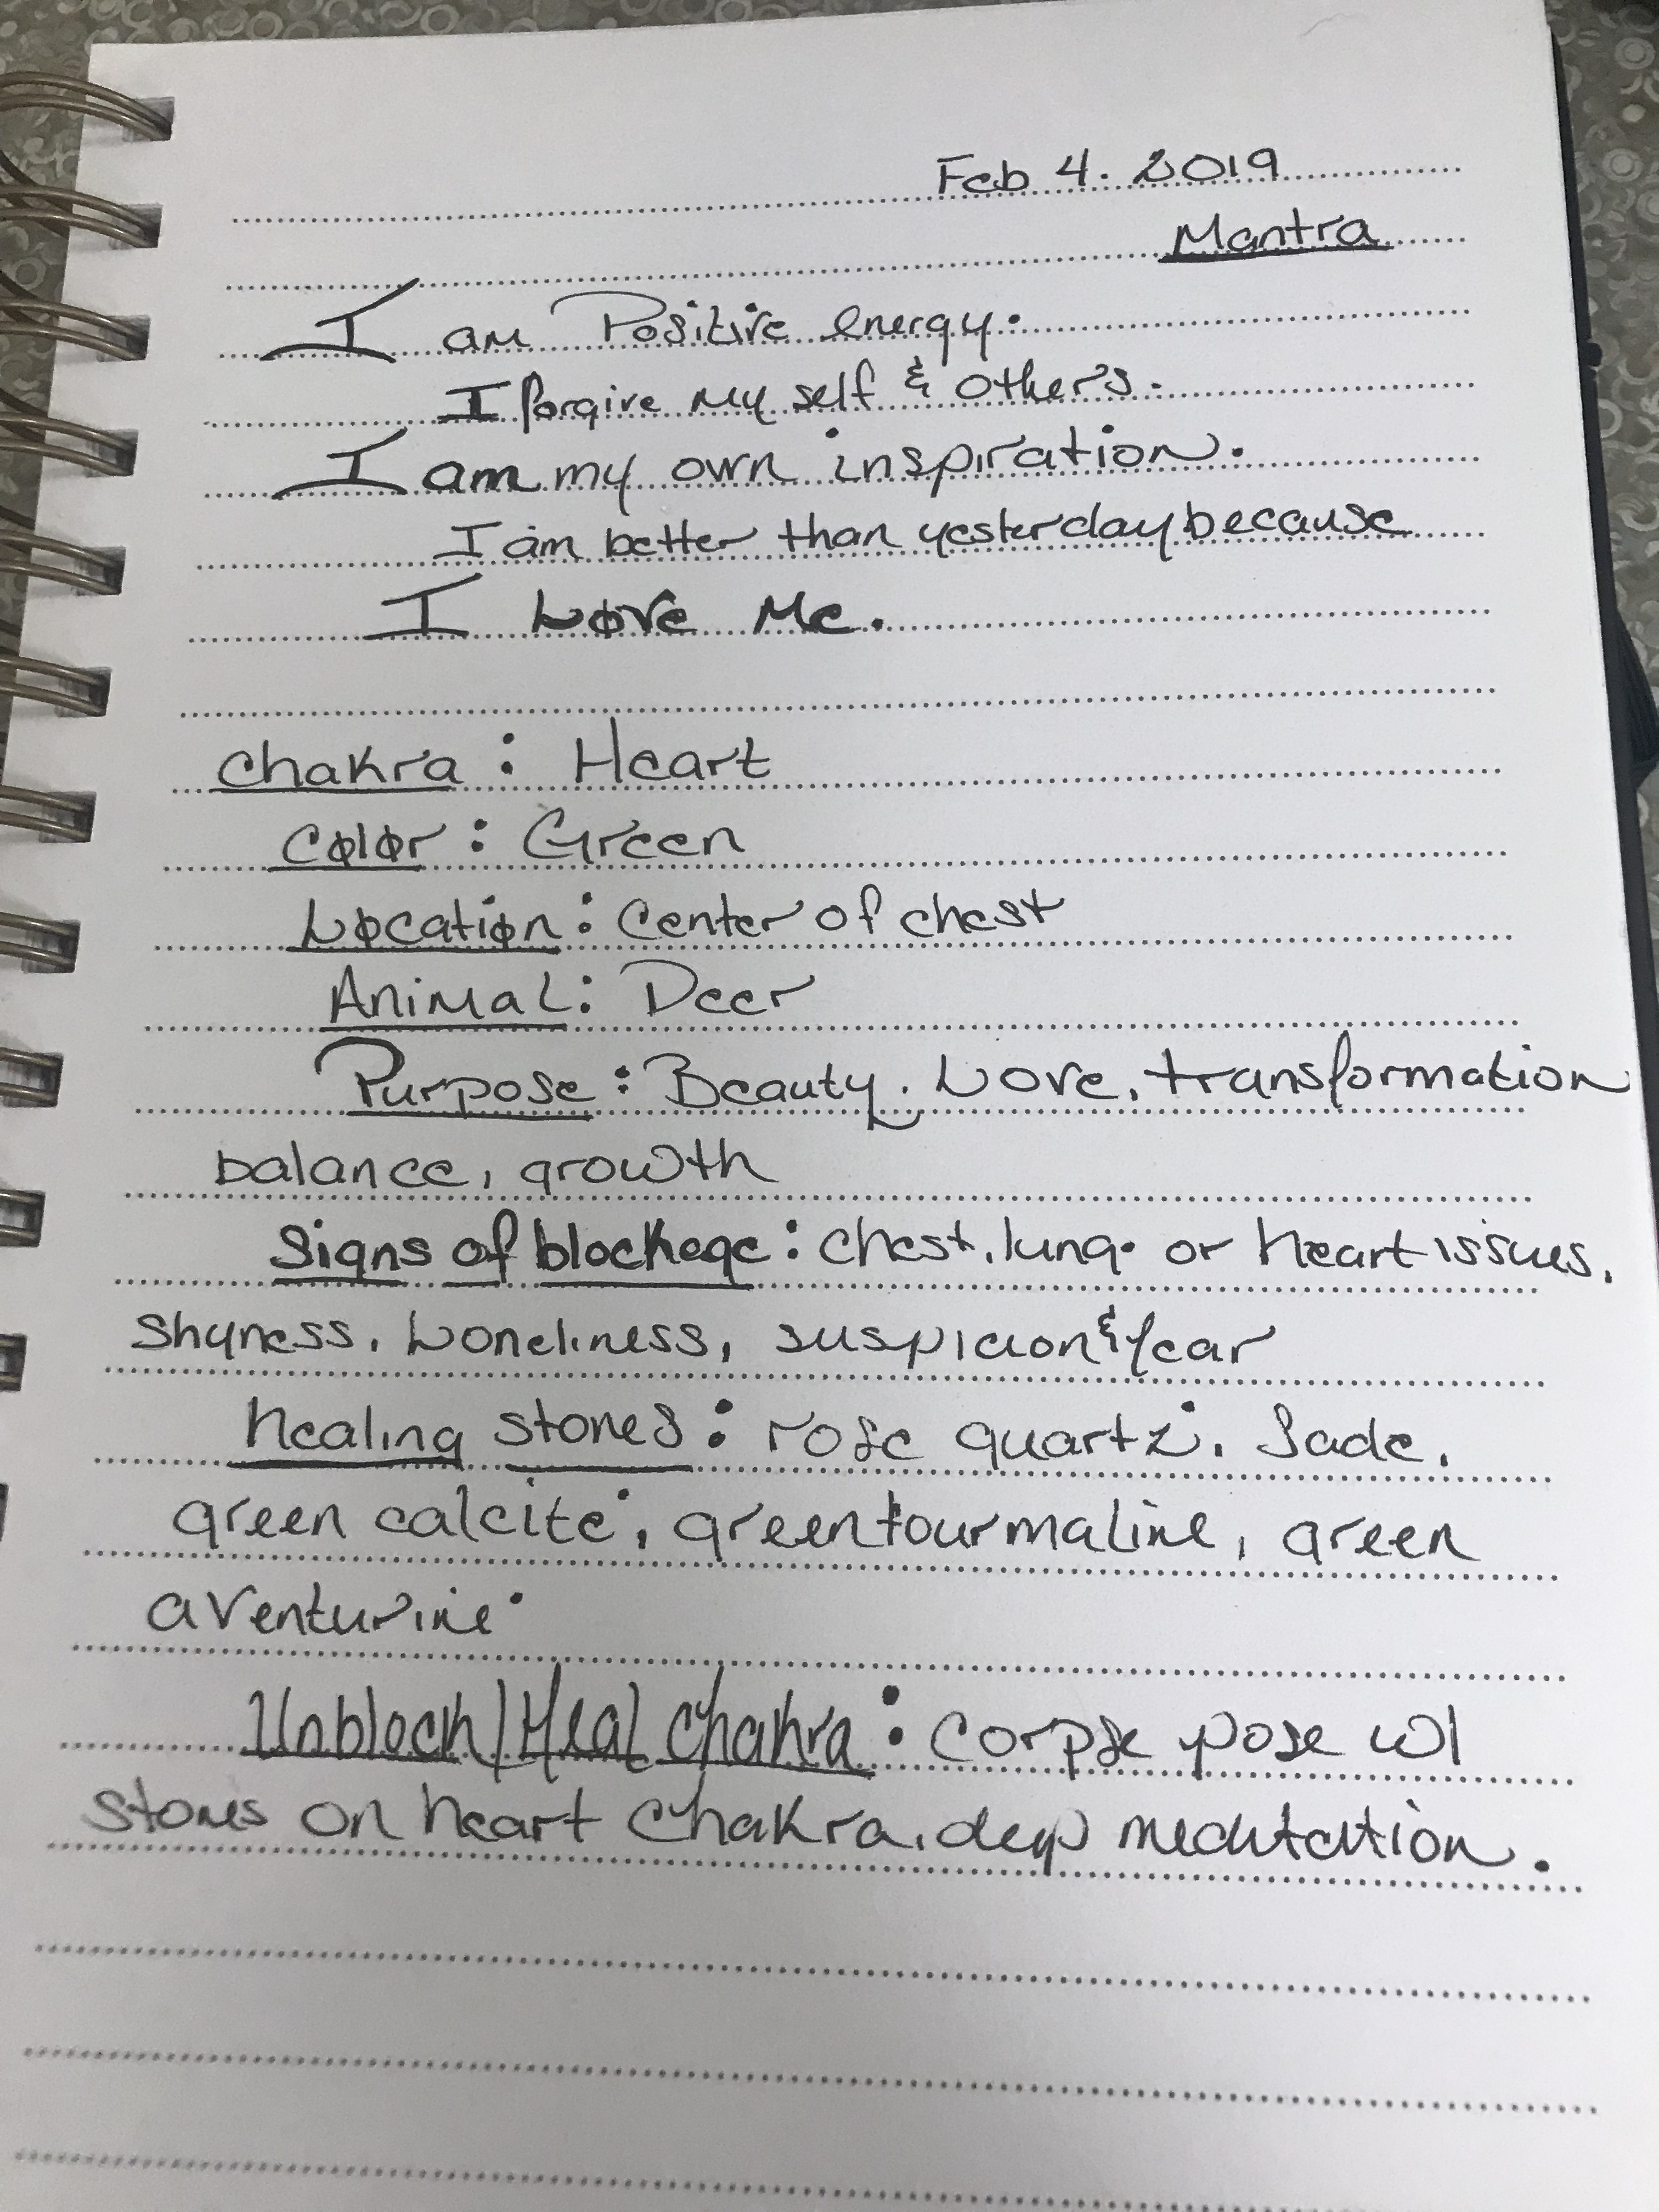 Feb 4. 2019
Mantra
I am Positive energy.
I forgive my self & other's.
I am my own inspiration.
I am better than yesterday because
I Love Me.
Chakra: Heart
Color: Green
Location: Center of chest
Animal: Deer
Purpose: Beauty. Love, transformation
balance, growth
Signs of blockege: Chest, lung. or heart issues,
Shyness, Loneliness, suspicion & fear
healing stones: rose quartz, Jade,
green calcite, green tourmaline, green
aventurine
Unblock/Heal Chakra: Corpse pose w/
Stones on heart Chakra, deep meditation.